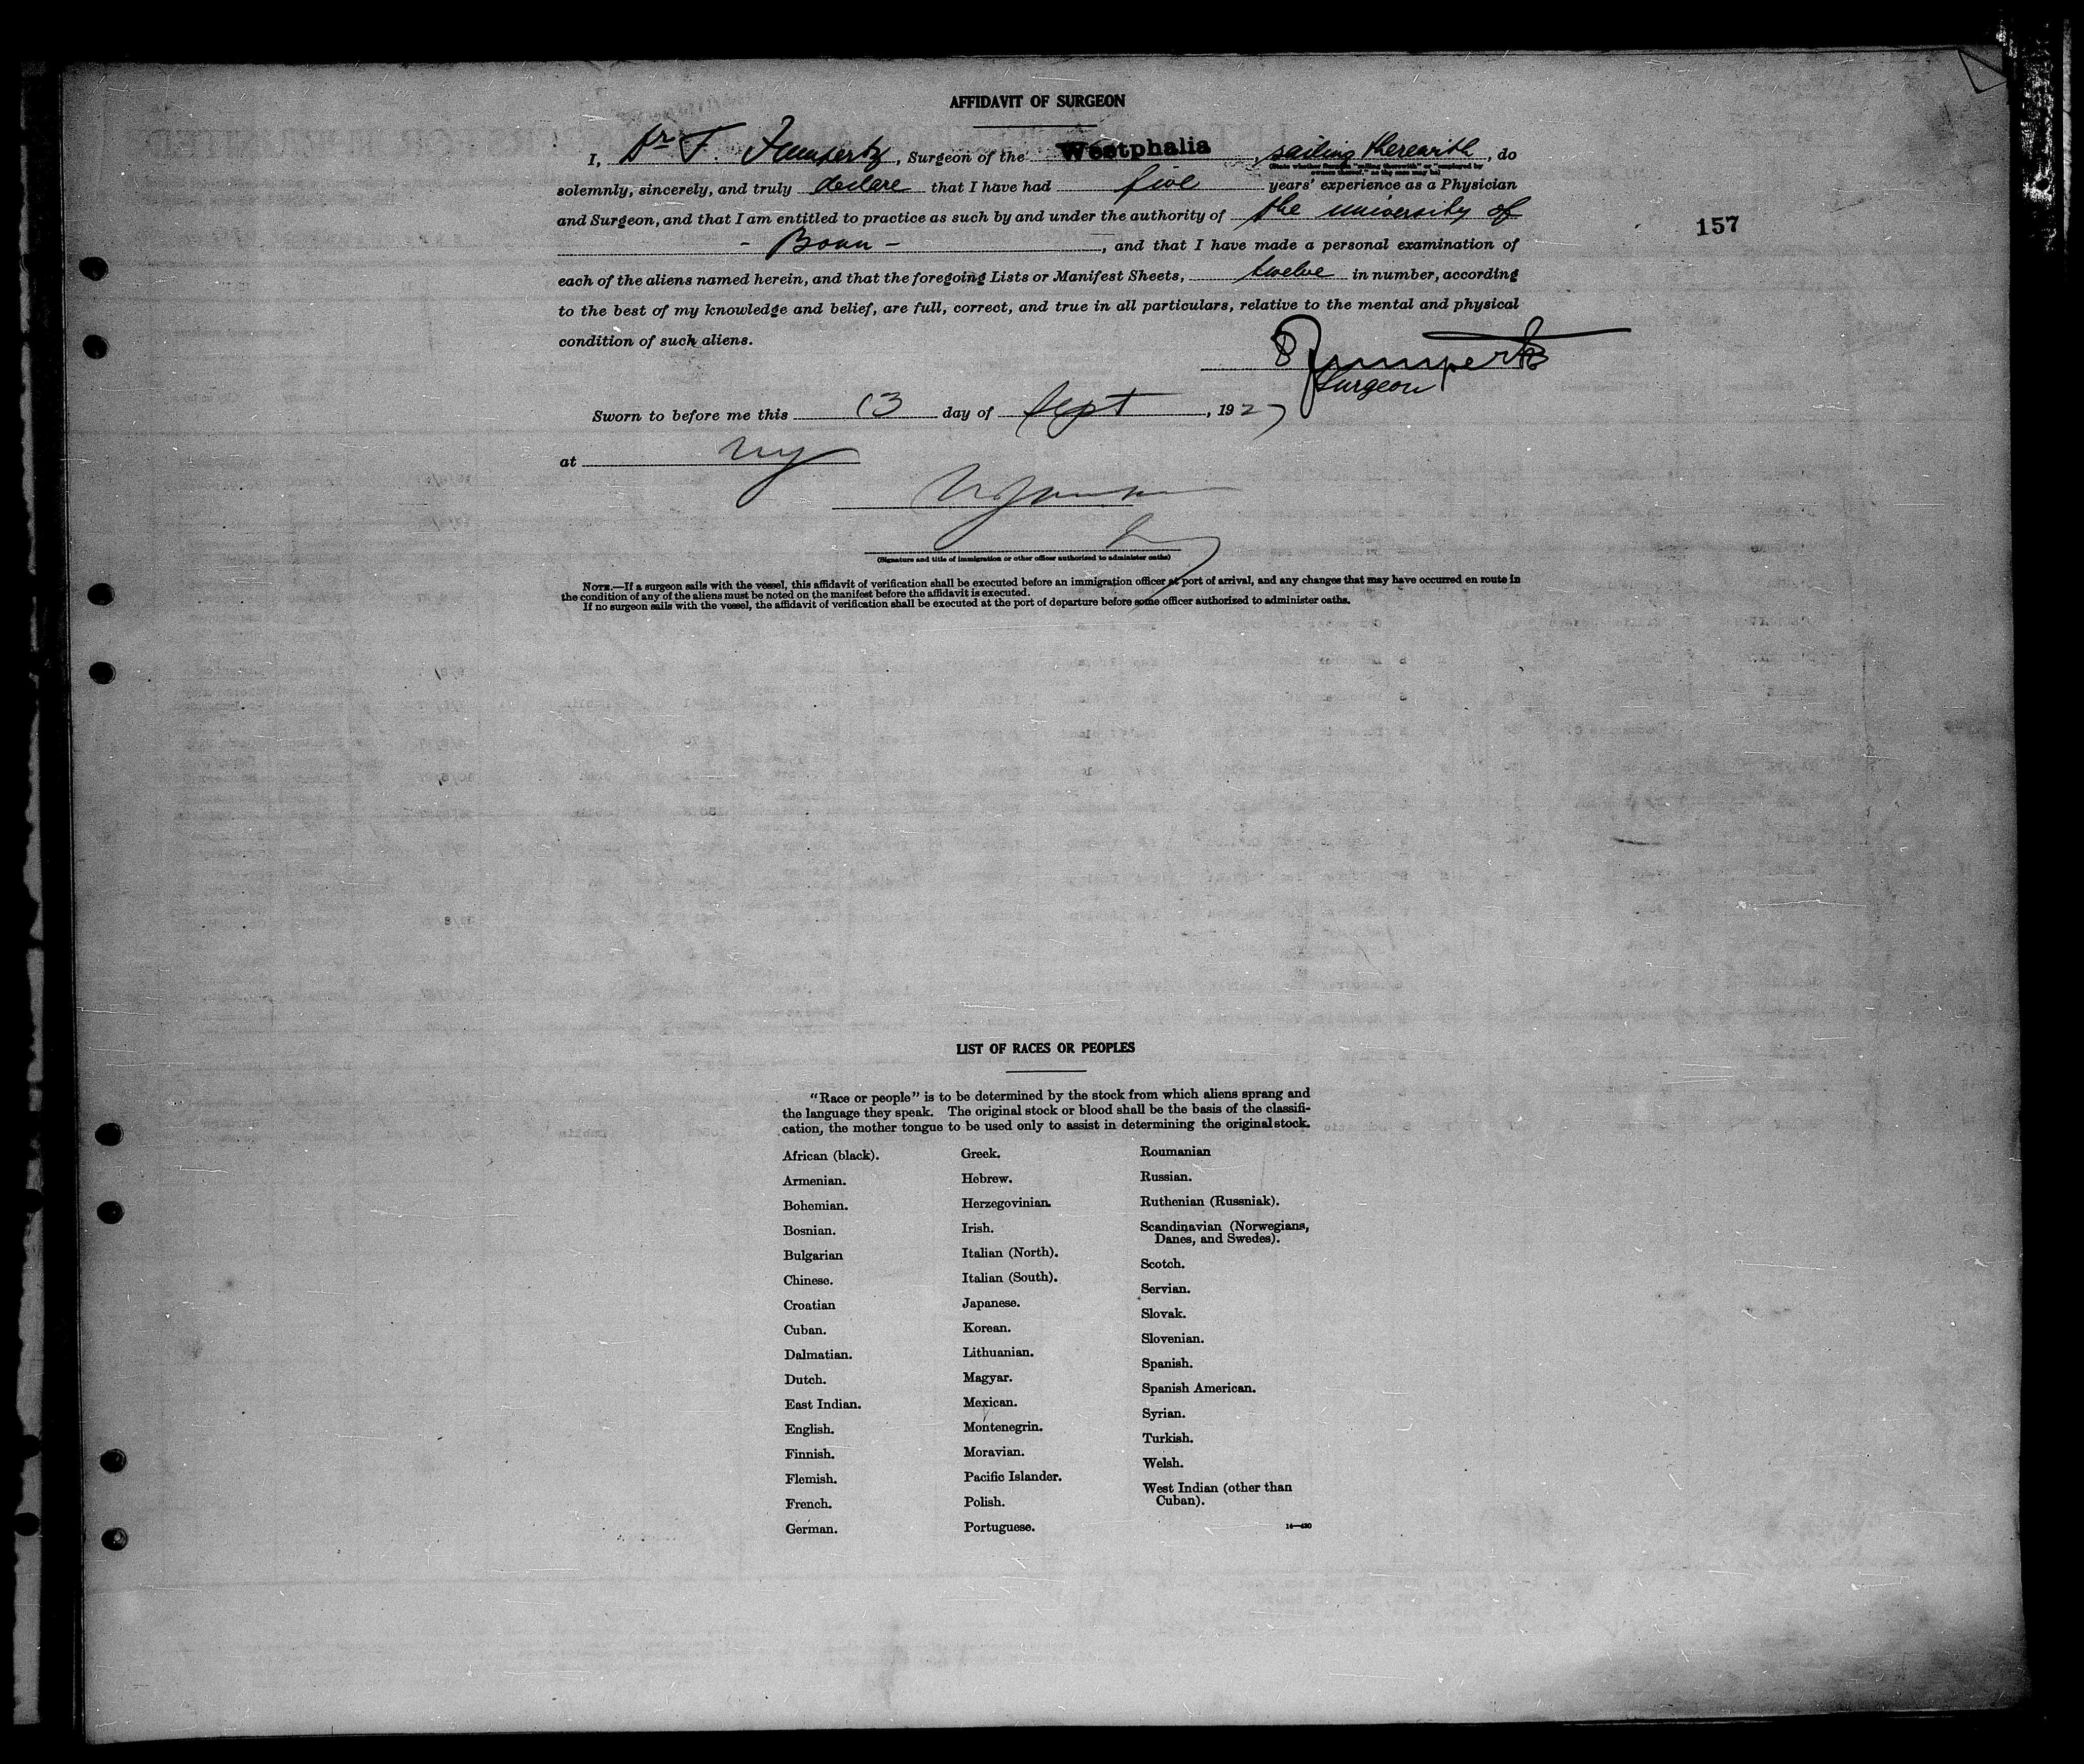 AFFIDAVIT OF SURGEON
I, Dr F. , Surgeon of the Westphalia , sailing therewith , do
(State whether Surgeon "sailing therewith" or "employed by
owners thereof," as the case may be)
solemnly, sincerely, and truly declare that I have had five years' experience as a Physician
and Surgeon, and that I am entitled to practice as such by and under the authority of the university of
157
- Bonn - , and that I have made a personal examination of
each of the aliens named herein, and that the foregoing Lists or Manifest Sheets, twelve in number, according
to the best of my knowledge and belief, are full, correct, and true in all particulars, relative to the mental and physical
condition of such aliens.
Surgeon
Sworn to before me this 13 day of Sept , 1927
at NY
(Signature and title of immigration or other officer authorized to administer oaths)
NOTE.—If a surgeon sails with the vessel, this affidavit of verification shall be executed before an immigration officer at port of arrival, and any changes that may have occurred en route in
the condition of any of the aliens must be noted on the manifest before the affidavit is executed.
If no surgeon sails with the vessel, the affidavit of verification shall be executed at the port of departure before some officer authorized to administer oaths.
LIST OF RACES OR PEOPLES
"Race or people" is to be determined by the stock from which aliens sprang and
the language they speak. The original stock or blood shall be the basis of the classifi-
cation, the mother tongue to be used only to assist in determining the original stock.
African (black).
Armenian.
Bohemian.
Bosnian.
Bulgarian
Chinese.
Croatian
Cuban.
Dalmatian.
Dutch.
East Indian.
English.
Finnish.
Flemish.
French.
German.
Greek.
Hebrew.
Herzegovinian.
Irish.
Italian (North).
Italian (South).
Japanese.
Korean.
Lithuanian.
Magyar.
Mexican.
Montenegrin.
Moravian.
Pacific Islander.
Polish.
Portuguese.
Roumanian
Russian.
Ruthenian (Russniak).
Scandinavian (Norwegians,
Danes, and Swedes).
Scotch.
Servian.
Slovak.
Slovenian.
Spanish.
Spanish American.
Syrian.
Turkish.
Welsh.
West Indian (other than
Cuban).
14—430